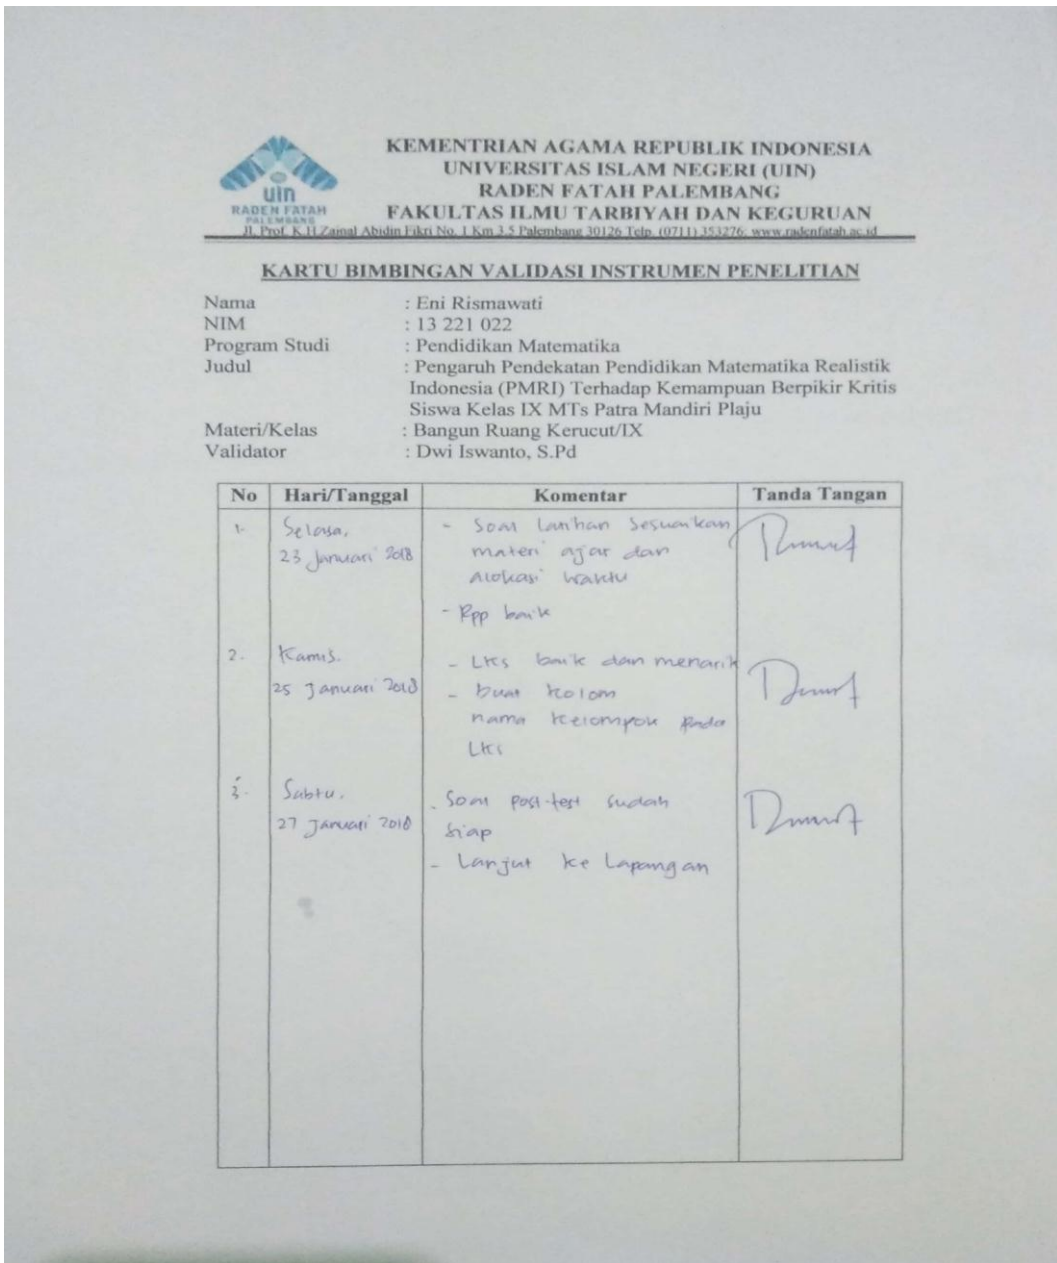 uin
RADEN FATAH
PALEMBANG
KEMENTRIAN AGAMA REPUBLIK INDONESIA
UNIVERSITAS ISLAM NEGERI (UIN)
RADEN FATAH PALEMBANG
FAKULTAS ILMU TARBIYAH DAN KEGURUAN
Jl. Prof. K.H Zainal Abidin Fikri No. 1 Km 3.5 Palembang 30126 Telp. (0711) 353276; www.radenfatah.ac.id
KARTU BIMBINGAN VALIDASI INSTRUMEN PENELITIAN
Nama : Eni Rismawati
NIM : 13 221 022
Program Studi : Pendidikan Matematika
Judul : Pengaruh Pendekatan Pendidikan Matematika Realistik
Indonesia (PMRI) Terhadap Kemampuan Berpikir Kritis
Siswa Kelas IX MTs Patra Mandiri Plaju
Materi/Kelas : Bangun Ruang Kerucut/IX
Validator : Dwi Iswanto, S.Pd
No Hari/Tanggal Komentar Tanda Tangan
1. Selasa, - Soal Latihan Sesuaikan
23 Januari 2018 materi ajar dan
alokasi waktu
- Rpp baik
2. Kamis. - LKS baik dan menarik
25 Januari 2018 - buat kolom
nama kelompok pada
LKS
3. Sabtu. - Soal post-test sudah
27 Januari 2018 siap
- Lanjut ke Lapangan